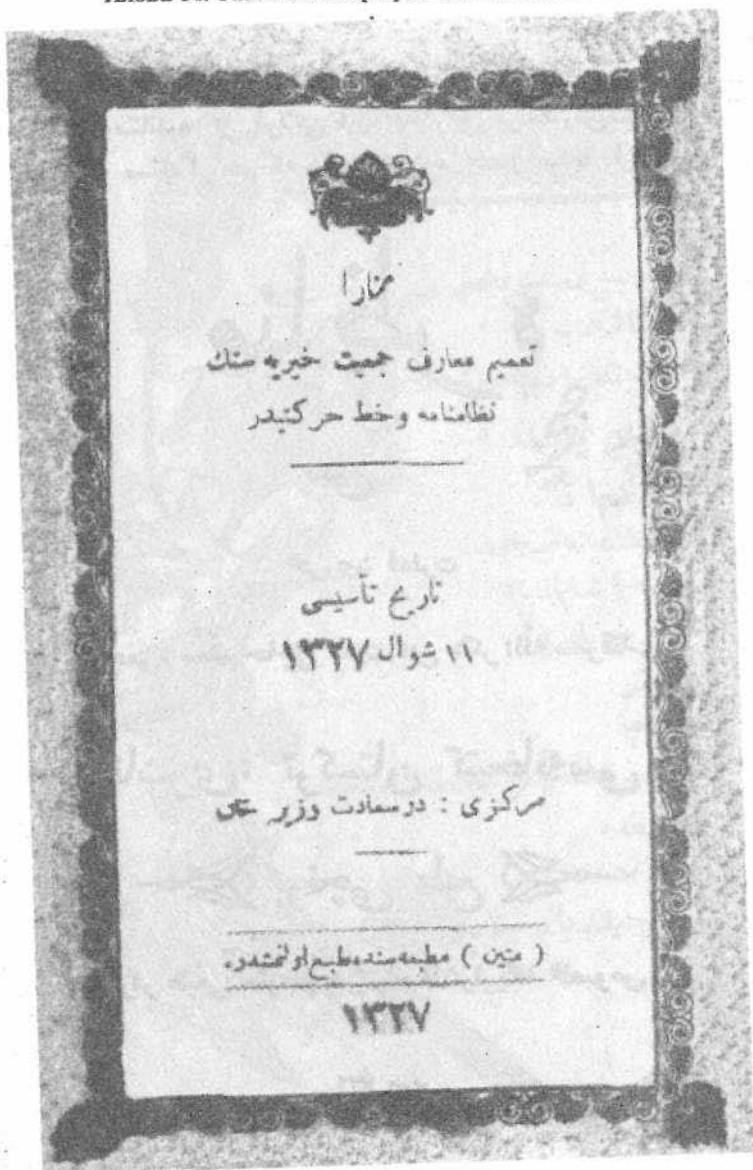 بخارا
تعميم معارف جمعيت خيريه سنك
نظامنامه و خط حركتيدر
تاريخ تأسيسى
١١ شوال ١٣٢٧
مركزى : درسعادت وزير خان
( متين ) مطبعه سنده طبع اولنمشدر.
١٣٢٧